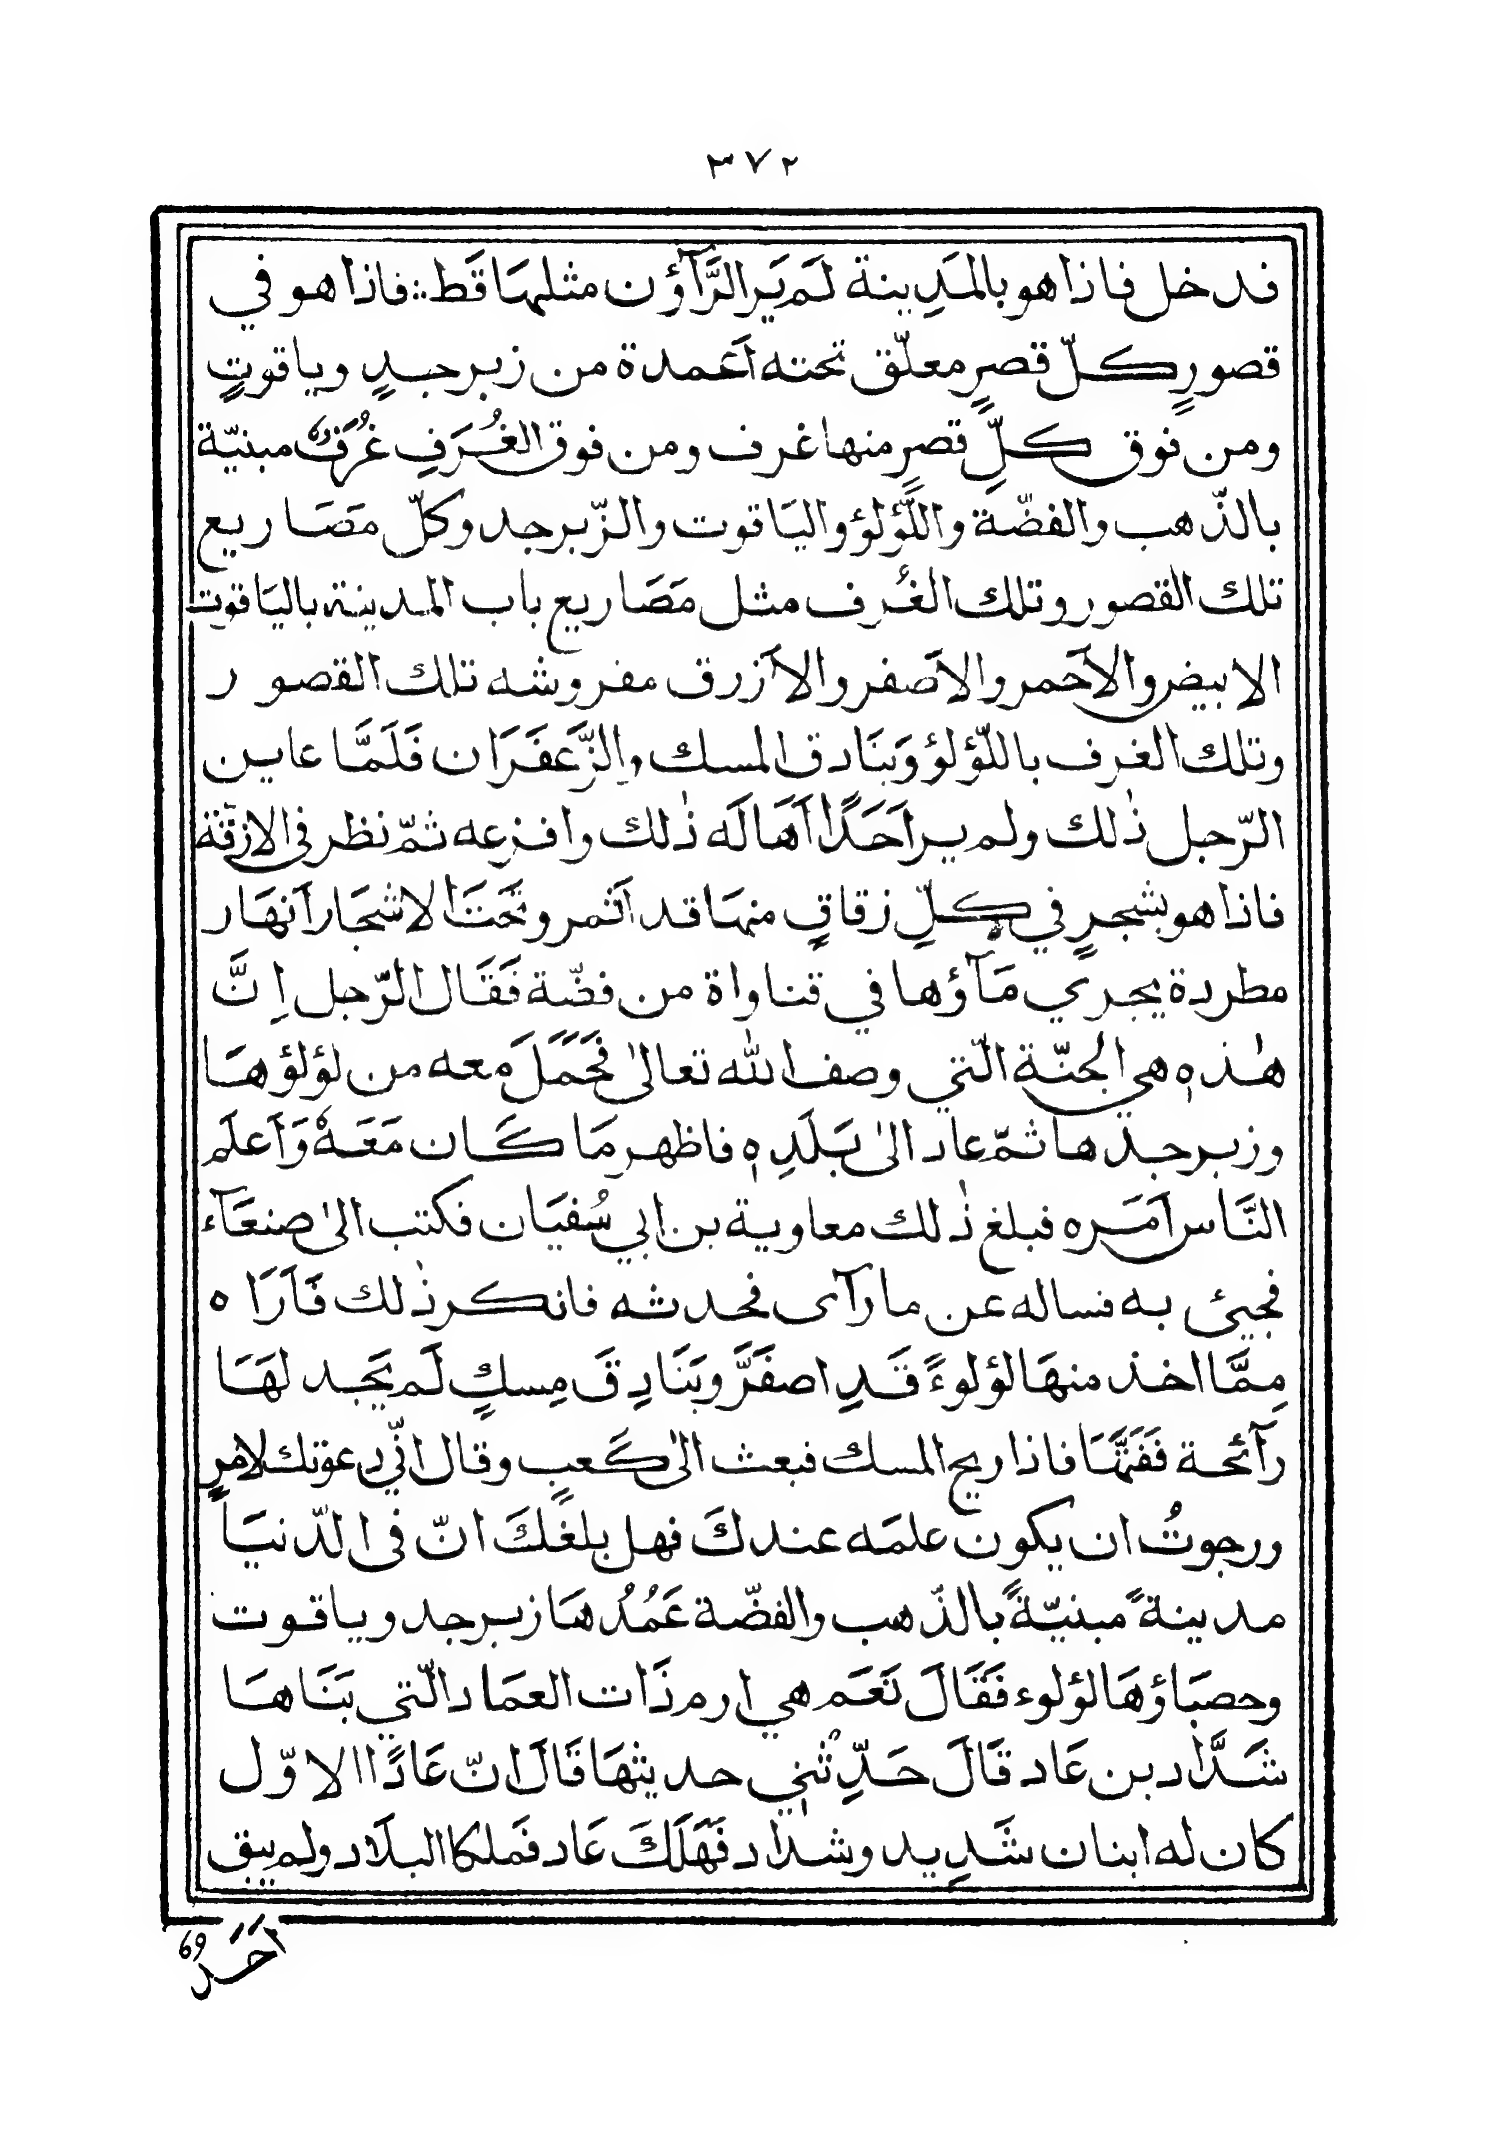 ٣٧٢
فدخل فاذا هو بالمَدِينة لَم يَر الرَّآؤن مثلهَا قَط: فاذا هو في
قصورٍ كلّ قصرٍ معلّق تحته اَعمدة من زبرجدٍ وياقوتٍ
ومن فوق كلِّ قصرٍ منها غرف ومن فوق الغُرَفِ غُرَفٌ مبنيّة
بالذّهب والفضّة واللّؤلؤ واليَاقوت والزّبرجد وكلّ مصَاريع
تلك القصور وتلك الغُرف مثل مَصَاريع باب المدينة باليَاقوت
الابيض والاَحمر والاَصفر والاَزرق مفروشه تلك القصور
وتلك الغرف باللّؤلؤ وَبنَادق المسك والزَّعفَرَان فَلَمَّا عاين
الرّجل ذٰلك ولم ير اَحَدًا اَهَالَه ذٰلك وافزعه ثمّ نظر في الازقّة
فاذا هو بشجرٍ في كلِّ زقاقٍ منهَا قد اَثمر وتحَتَ الاشجَار اَنهَار
مطردة يجري مَآؤها في قناواة من فضّة فَقَال الرّجل اِنَّ
هٰذه هي الجنّة الّتي وصف الله تعالىٰ فحَمَلَ معه من لؤلؤهَا
وزبرجدها ثمّ عاد الىٰ بَلَدِه فاظهر مَا كَان مَعَهٗ وَاَعلَم
النَّاس اَمَره فبلغ ذٰلك معاوية بن ابي سُفيَان فكتب الىٰ صنعَآء
فجيئ به فساله عن ما رآى فحدثه فانكر ذٰلك فَاَرَاه
مِمَّا اخذ منهَا لؤلوءً قَدِ اصفَرَّ وبَنَادِقَ مِسكٍ لَم يَجد لهَا
رآئحة فَفَتَّهَا فاذا ريح المسك فبعث الىٰ كَعبٍ وقال انّي دعوتك لامرٍ
ورجوتُ ان يكون علمَه عندكَ فهل بلغَكَ انّ في الدّنيَا
مدينةً مبنيّةً بالذّهب والفضّة عَمُدُهَا زبرجد وياقوت
وحصبَاؤهَا لؤلوء فَقَالَ نَعَم هي ارم ذَات العمَاد الّتي بَنَاهَا
شَدَّاد بن عَاد قَالَ حَدِّثني حديثهَا قَالَ انّ عَادًا الاوّل
كان له ابنان شَدِيد وشداد فَهَلَكَ عَاد فمَلكا البلَاد ولم يبق
اَحَدٌ